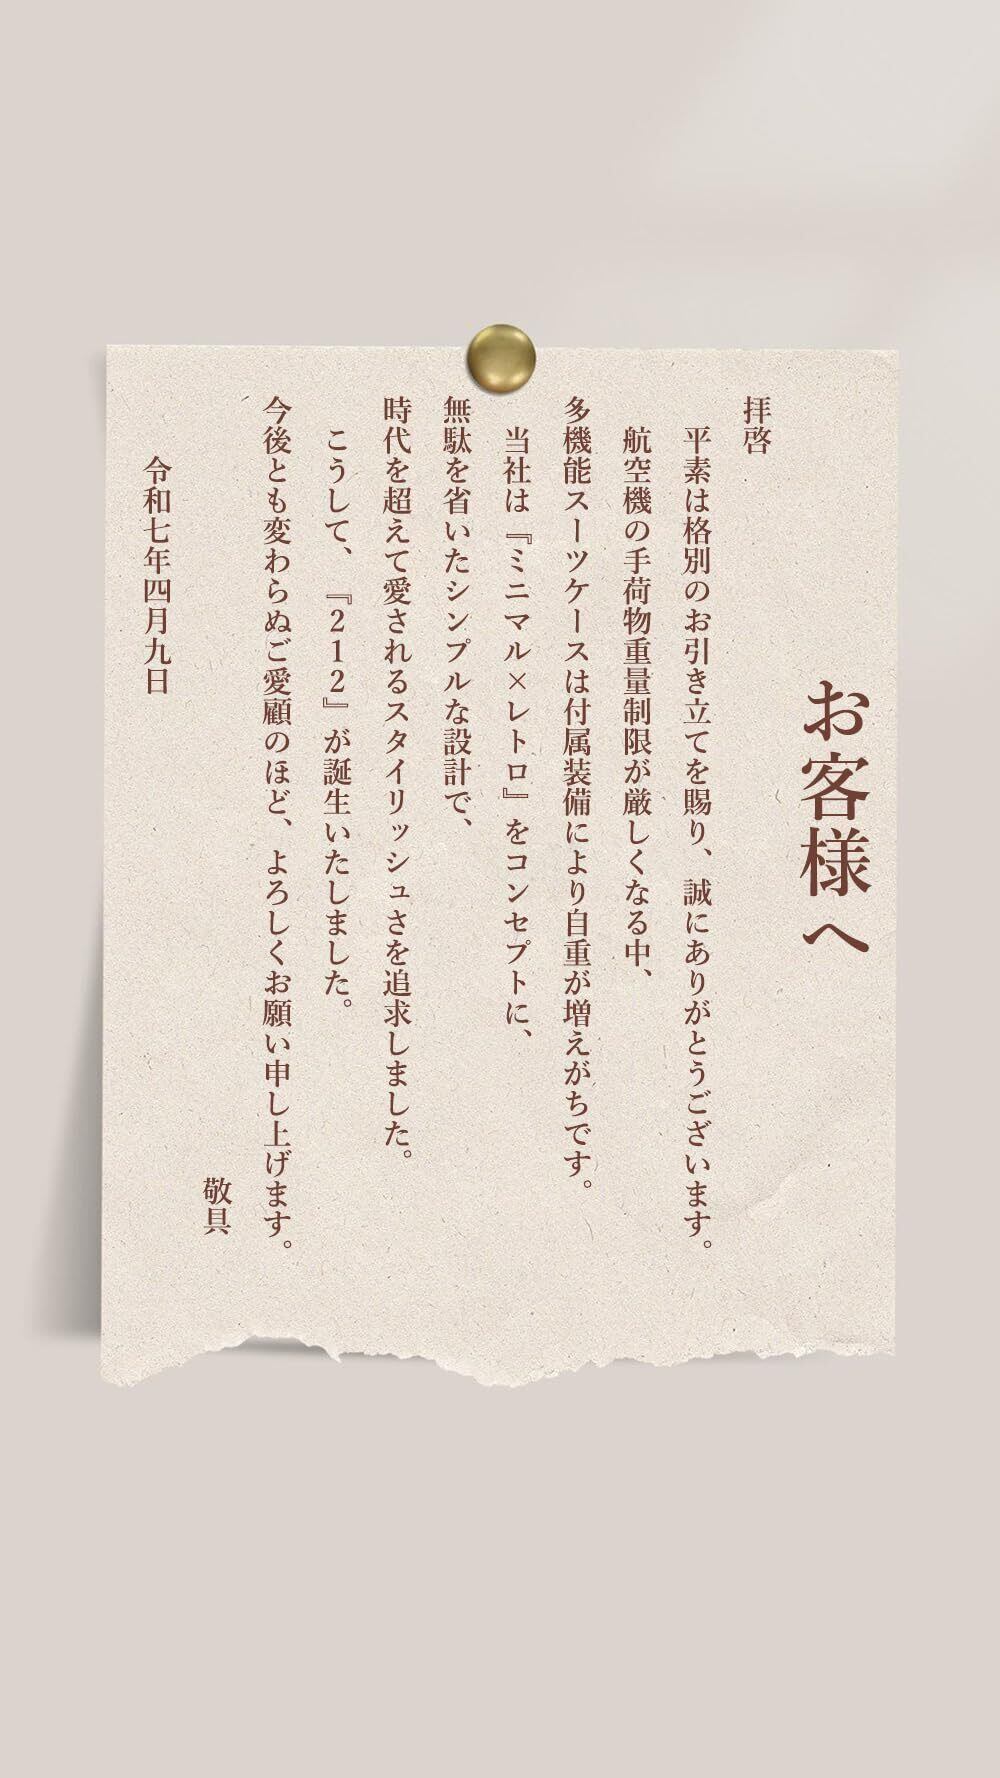 お客様へ
拝啓
平素は格別のお引き立てを賜り、誠にありがとうございます。
航空機の手荷物重量制限が厳しくなる中、
多機能スーツケースは付属装備により自重が増えがちです。
当社は『ミニマル×レトロ』をコンセプトに、
無駄を省いたシンプルな設計で、
時代を超えて愛されるスタイリッシュさを追求しました。
こうして、『212』が誕生いたしました。
今後とも変わらぬご愛顧のほど、よろしくお願い申し上げます。
敬具
令和七年四月九日